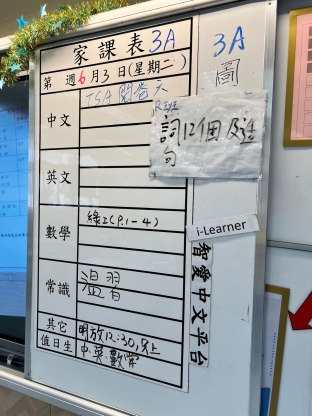 家課表 3A
3A
圖
第 週 6月3日(星期二)
中文
TSA 閱卷六
R班
詞12個及造句
英文
i-Learner
數學
綜工(P.1-4)
常識
溫習
智愛中文平台
其它
明放12:30,早上
值日生
中英數常